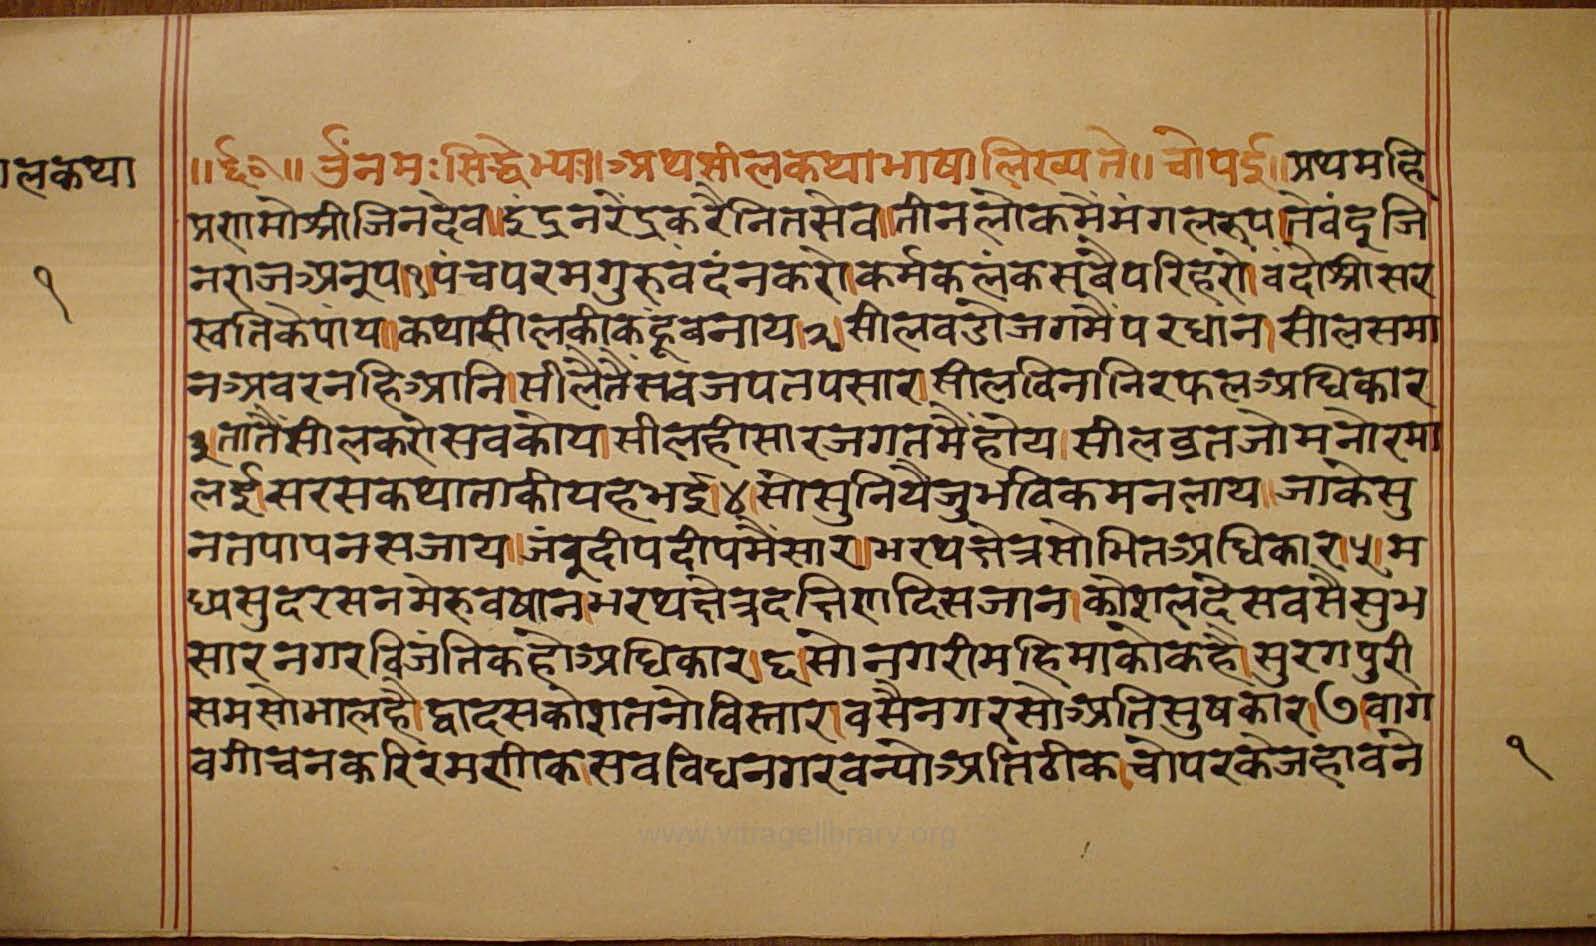 ालकथा
॥ई०॥ र्उंनमःसिद्धेभ्यः॥अथसीलकथाभाषालिख्यते॥चोपई॥प्रथमहि
प्रणमौश्रीजिनदेव॥इंद्रनरेंद्रकरैनितसेव॥तीनलोकमैंमंगलरूप॥तेवंदूजि
नराजअनूप१पंचपरमगुरुवंदंनकरो।कर्मकलंकसबैपरिहरों।वंदोश्रीसर
स्वतिकेपांय॥कथासीलकीकंहूबनाय।२।सीलवडोजगमैंपरधांन।सीलसमा
नअवरनहिआनि।सीलैतैंसवजपतपसार।सीलविनानिरफलअधिकार
३।तातैंसीलकरोसवकोय।सीलहीसारजगतमैंहोय।सीलव्रतजोमनोरमा
लई।सरसकथाताकीयहभई।४।सोसुनियैजुभविकमनलाय॥जाकेसु
नतपापनसजाय॥जंबूदीपदीपमैंसार॥भरथक्षेत्रसोभितअधिकार।५।म
ध्यसुदरसनमेरुवषांन।भरथक्षेत्रदक्षिणदिसजान।कोशलदेसवसैसुभ
सारनगरविजंतिकहोअधिकार।६।सोनगरीमहिमाकोकहै।सुरगपुरी
समसोभालहै।द्वादसकोशतनोविस्तार।वसैनगरसोअतिसुषकार।७।वाग
वगीचनकरिरमणीक।सवविधनगरवन्योअतिठीक।चोपरकेजहावने
१
१
www.vitragelibrary.org